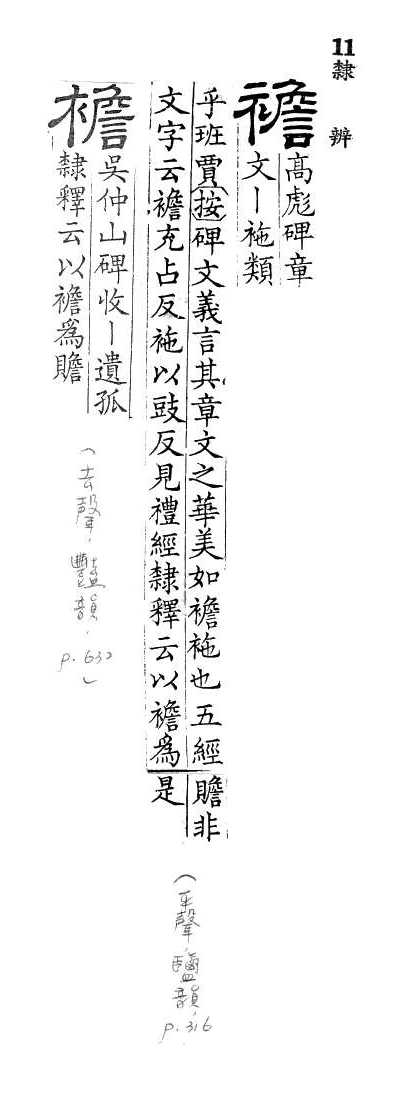 11
隸辨
襜
高彪碑章
文丨袘類
乎班賈按碑文義言其章文之華美如襜袘也五經
文字云襜充占反袘以豉反見禮經隸釋云以襜爲
贍非
是
(平聲,鹽韻,p.316
襜
吳仲山碑收丨遺孤
隸釋云以襜爲贍
(去聲,豔韻,p.632)